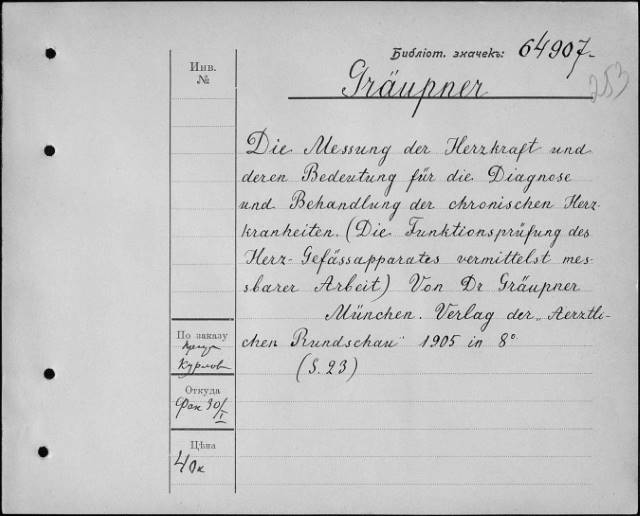 Библіот. значекъ: 64907-
253
Gräupner
Инв.
№
Die Messung der Herzkraft und
deren Bedeutung für die Diagnose
und Behandlung der chronischen Herz-
kranheiten. (Die Funktionsprüfung des
Herz-Gefässapparates vermittelst mes-
sbarer Arbeit) Von Dr Gräupner
München. Verlag der „Aerztli-
chen Rundschau" 1905 in 8°
(S. 23)
По заказу
Курлов
Откуда
Фак 30/I
Цѣна
40к